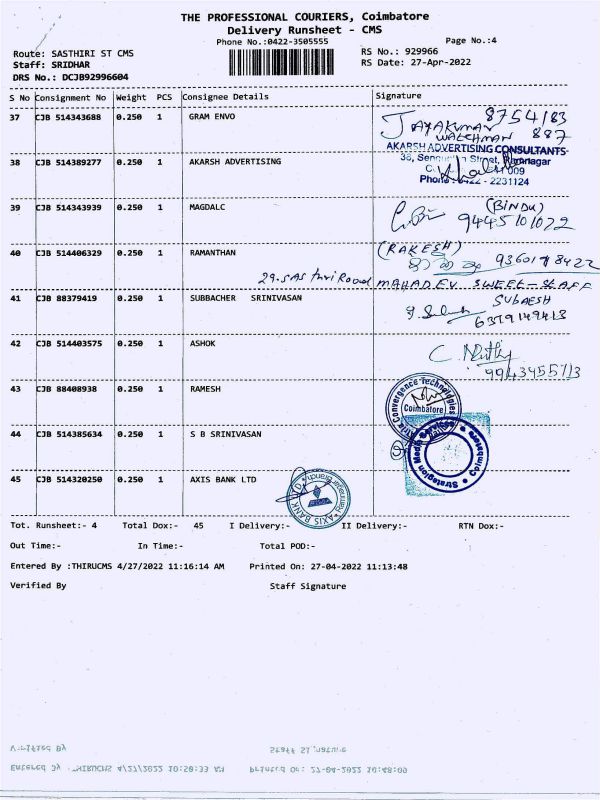 THE PROFESSIONAL COURIERS, Coimbatore
Delivery Runsheet - CMS
Phone No.:0422-3505555
Page No.:4
Route: SASTHIRI ST CMS
RS No.: 929966
Staff: SRIDHAR
RS Date: 27-Apr-2022
DRS No.: DCJB92996604
S No Consignment No Weight PCS Consignee Details Signature
37 CJB 514343688 0.250 1 GRAM ENVO
8754183
JAYAKUMAR
WATCHMAN 887
38 CJB 514389277 0.250 1 AKARSH ADVERTISING
AKARSH ADVERTISING CONSULTANTS
Street, Ramnagar
- 2231124
39 CJB 514343939 0.250 1 MAGDALC
(BINDU)
9445101072
40 CJB 514406329 0.250 1 RAMANTHAN
(RAKESH)
MAHADEV SWEET-STAFF
41 CJB 88379419 0.250 1 SUBBACHER SRINIVASAN
6379149413
42 CJB 514403575 0.250 1 ASHOK
43 CJB 88408938 0.250 1 RAMESH
Convergence Technologies
Coimbatore
44 CJB 514385634 0.250 1 S B SRINIVASAN
Strategion Media Services
Coimbatore
45 CJB 514320250 0.250 1 AXIS BANK LTD
AXIS BANK LTD
Ramnagar Branch
Tot. Runsheet:- 4 Total Dox:- 45 I Delivery:- II Delivery:- RTN Dox:-
Out Time:- In Time:- Total POD:-
Entered By :THIRUCMS 4/27/2022 11:16:14 AM Printed On: 27-04-2022 11:13:48
Verified By Staff Signature